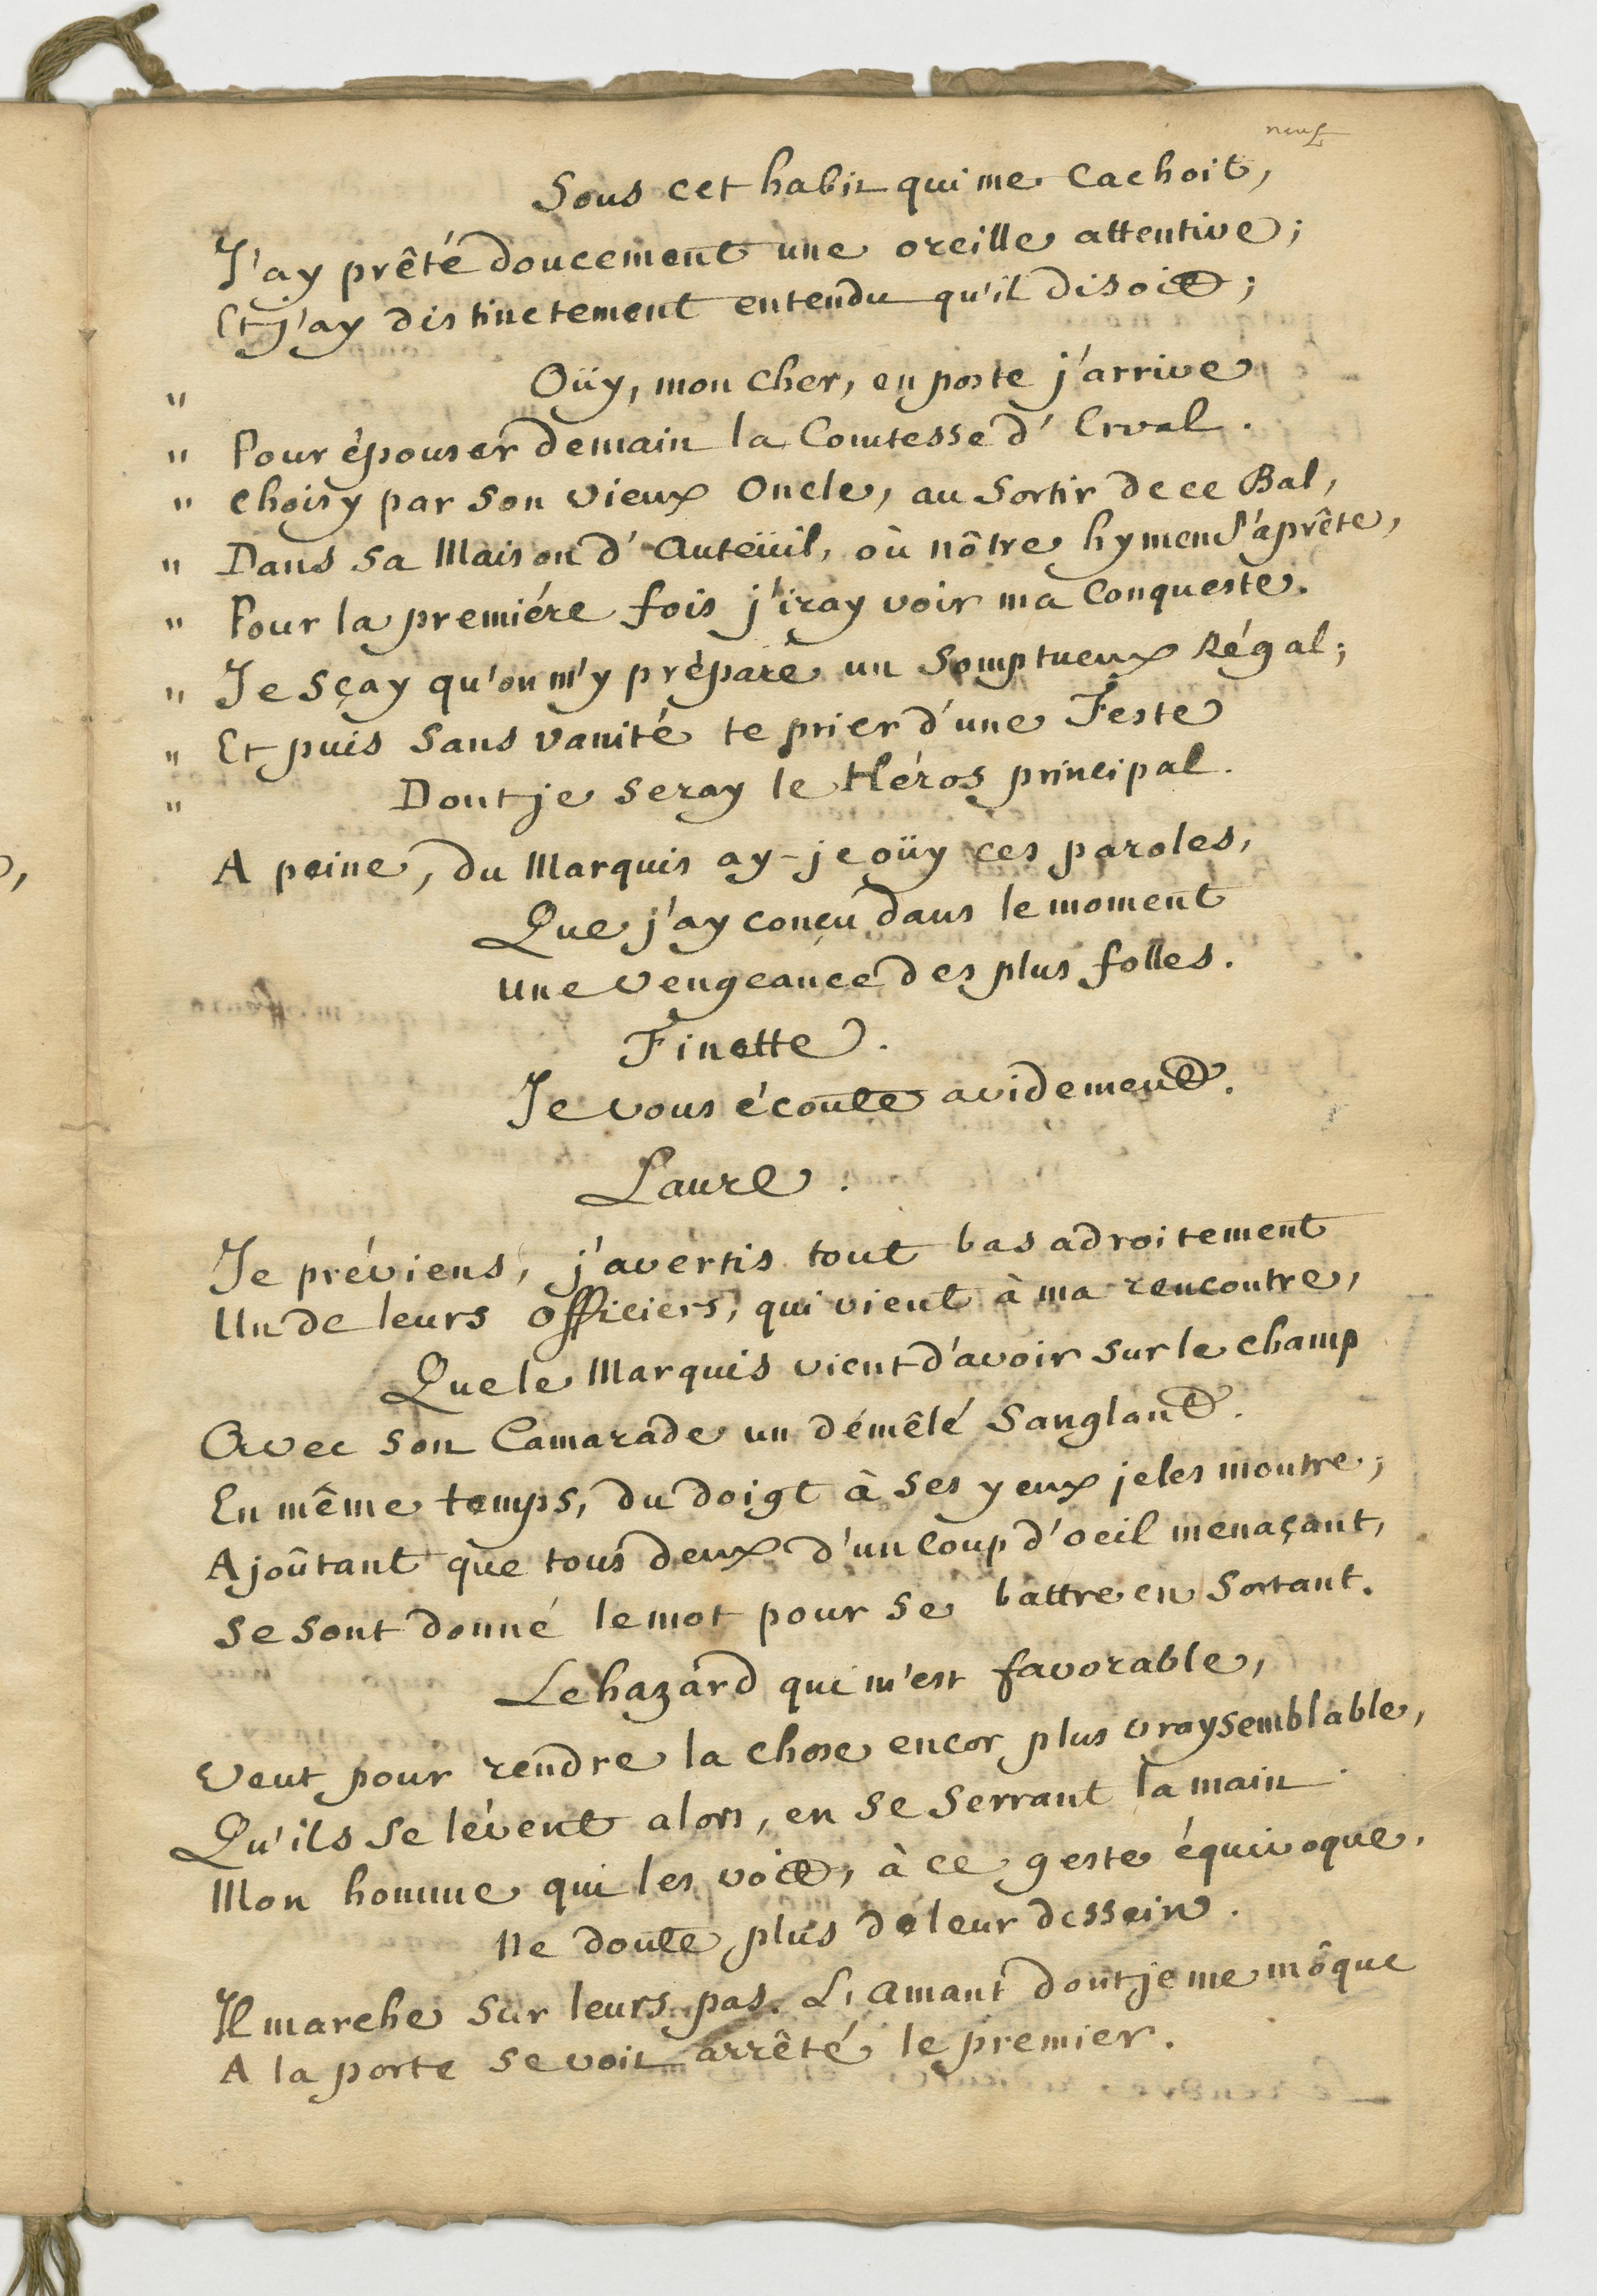 neuf
Sous cet habit qui me Cachoit,
J'ay prêté doucement une oreille attentive;
Et j'ay distinctement entendu qu'il disoit;
" Oüy, mon cher, en poste j'arrive
" Pour épouser demain la Comtesse d'Erval.
" Choisy par son vieux Oncle, au sortir de ce Bal,
" Dans sa Maison d'Auteüil, où nôtre hymen s'aprête,
" Pour la premiére fois j'iray voir ma Conqueste.
" Je sçay qu'on m'y prépare un somptueux Régal;
" Et puis sans vanité te prier d'une Feste
" Dont je seray le Héros principal.
A peine, du Marquis ay-je oüy ces paroles,
Que j'ay conçu dans le moment
Une vengeance des plus folles.
Finette.
Je vous écoute avidement.
Laure.
Je préviens, j'avertis tout bas adroitement
Un de leurs Officiers, qui vient à ma rencontre,
Que le Marquis vient d'avoir sur le champ
Avec son Camarade un démêlé sanglant.
En même temps, du doigt à ses yeux je les montre;
Ajoûtant que tous deux d'un coup d'oeil menaçant,
Se sont donné le mot pour se battre en sortant.
Le hazard qui m'est favorable,
Veut pour rendre la chose encor plus vraysemblable,
Qu'ils se lévent alors, en se serrant la main.
Mon homme qui les voit, à ce geste équivoque,
Ne doute plus de leur dessein.
Il marche sur leurs pas. L'Amant dont je me môque
A la porte se voit arrêté le premier.